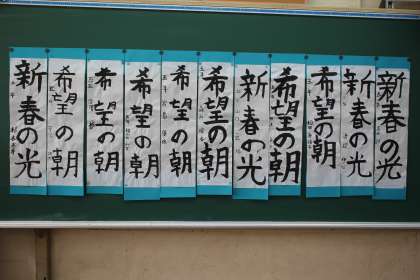 新春の光
希望の朝
新春の光
希望の朝
希望の朝
新春の光
希望の朝
希望の朝
希望の朝
希望の朝
希望の朝
希望の朝
新春の光